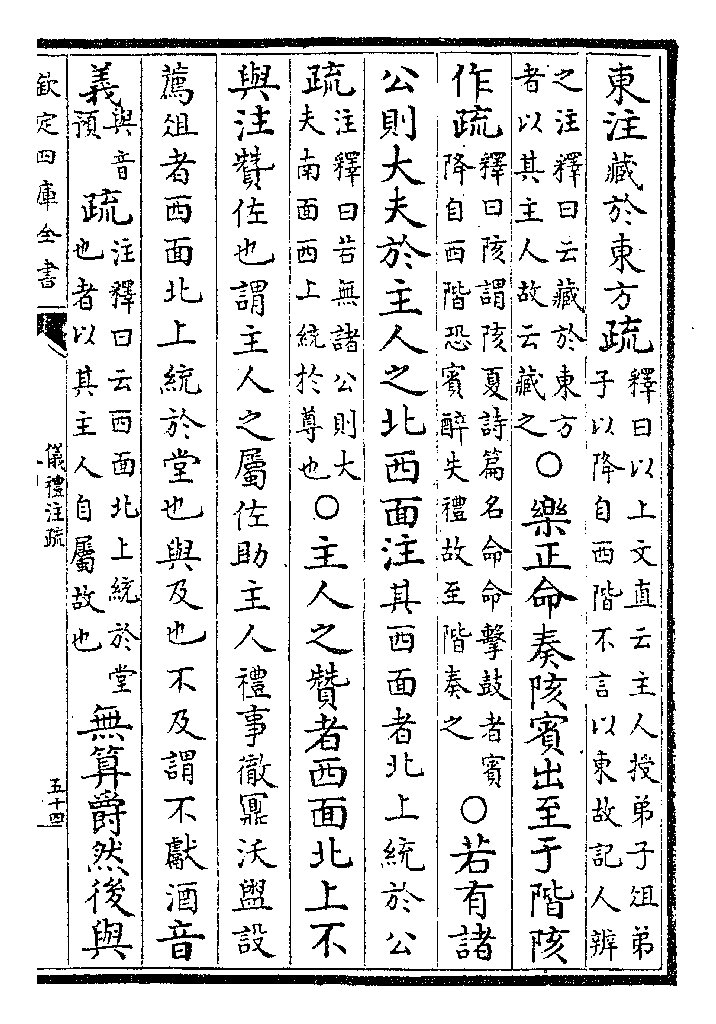 東注藏於東方疏釋曰以上文直云主人授弟子俎弟子以降自西階不言以東故記人辨
之注釋曰云藏於東方者以其主人故云藏之○樂正命奏陔賓出至于階陔
作疏釋曰陔謂陔夏詩篇名命命擊鼓者賓降自西階恐賓醉失禮故至階奏之○若有諸
公則大夫於主人之北西面注其西面者北上統於公
疏注釋曰若無諸公則大夫南面西上統於尊也○主人之贊者西面北上不
與注贊佐也謂主人之屬佐助主人禮事徹鼏沃盥設
薦俎者西面北上統於堂也與及也不及謂不獻酒音
義與音預疏注釋曰云西面北上統於堂也者以其主人自屬故也無算爵然後與
欽定四庫全書
儀禮注疏
五十四